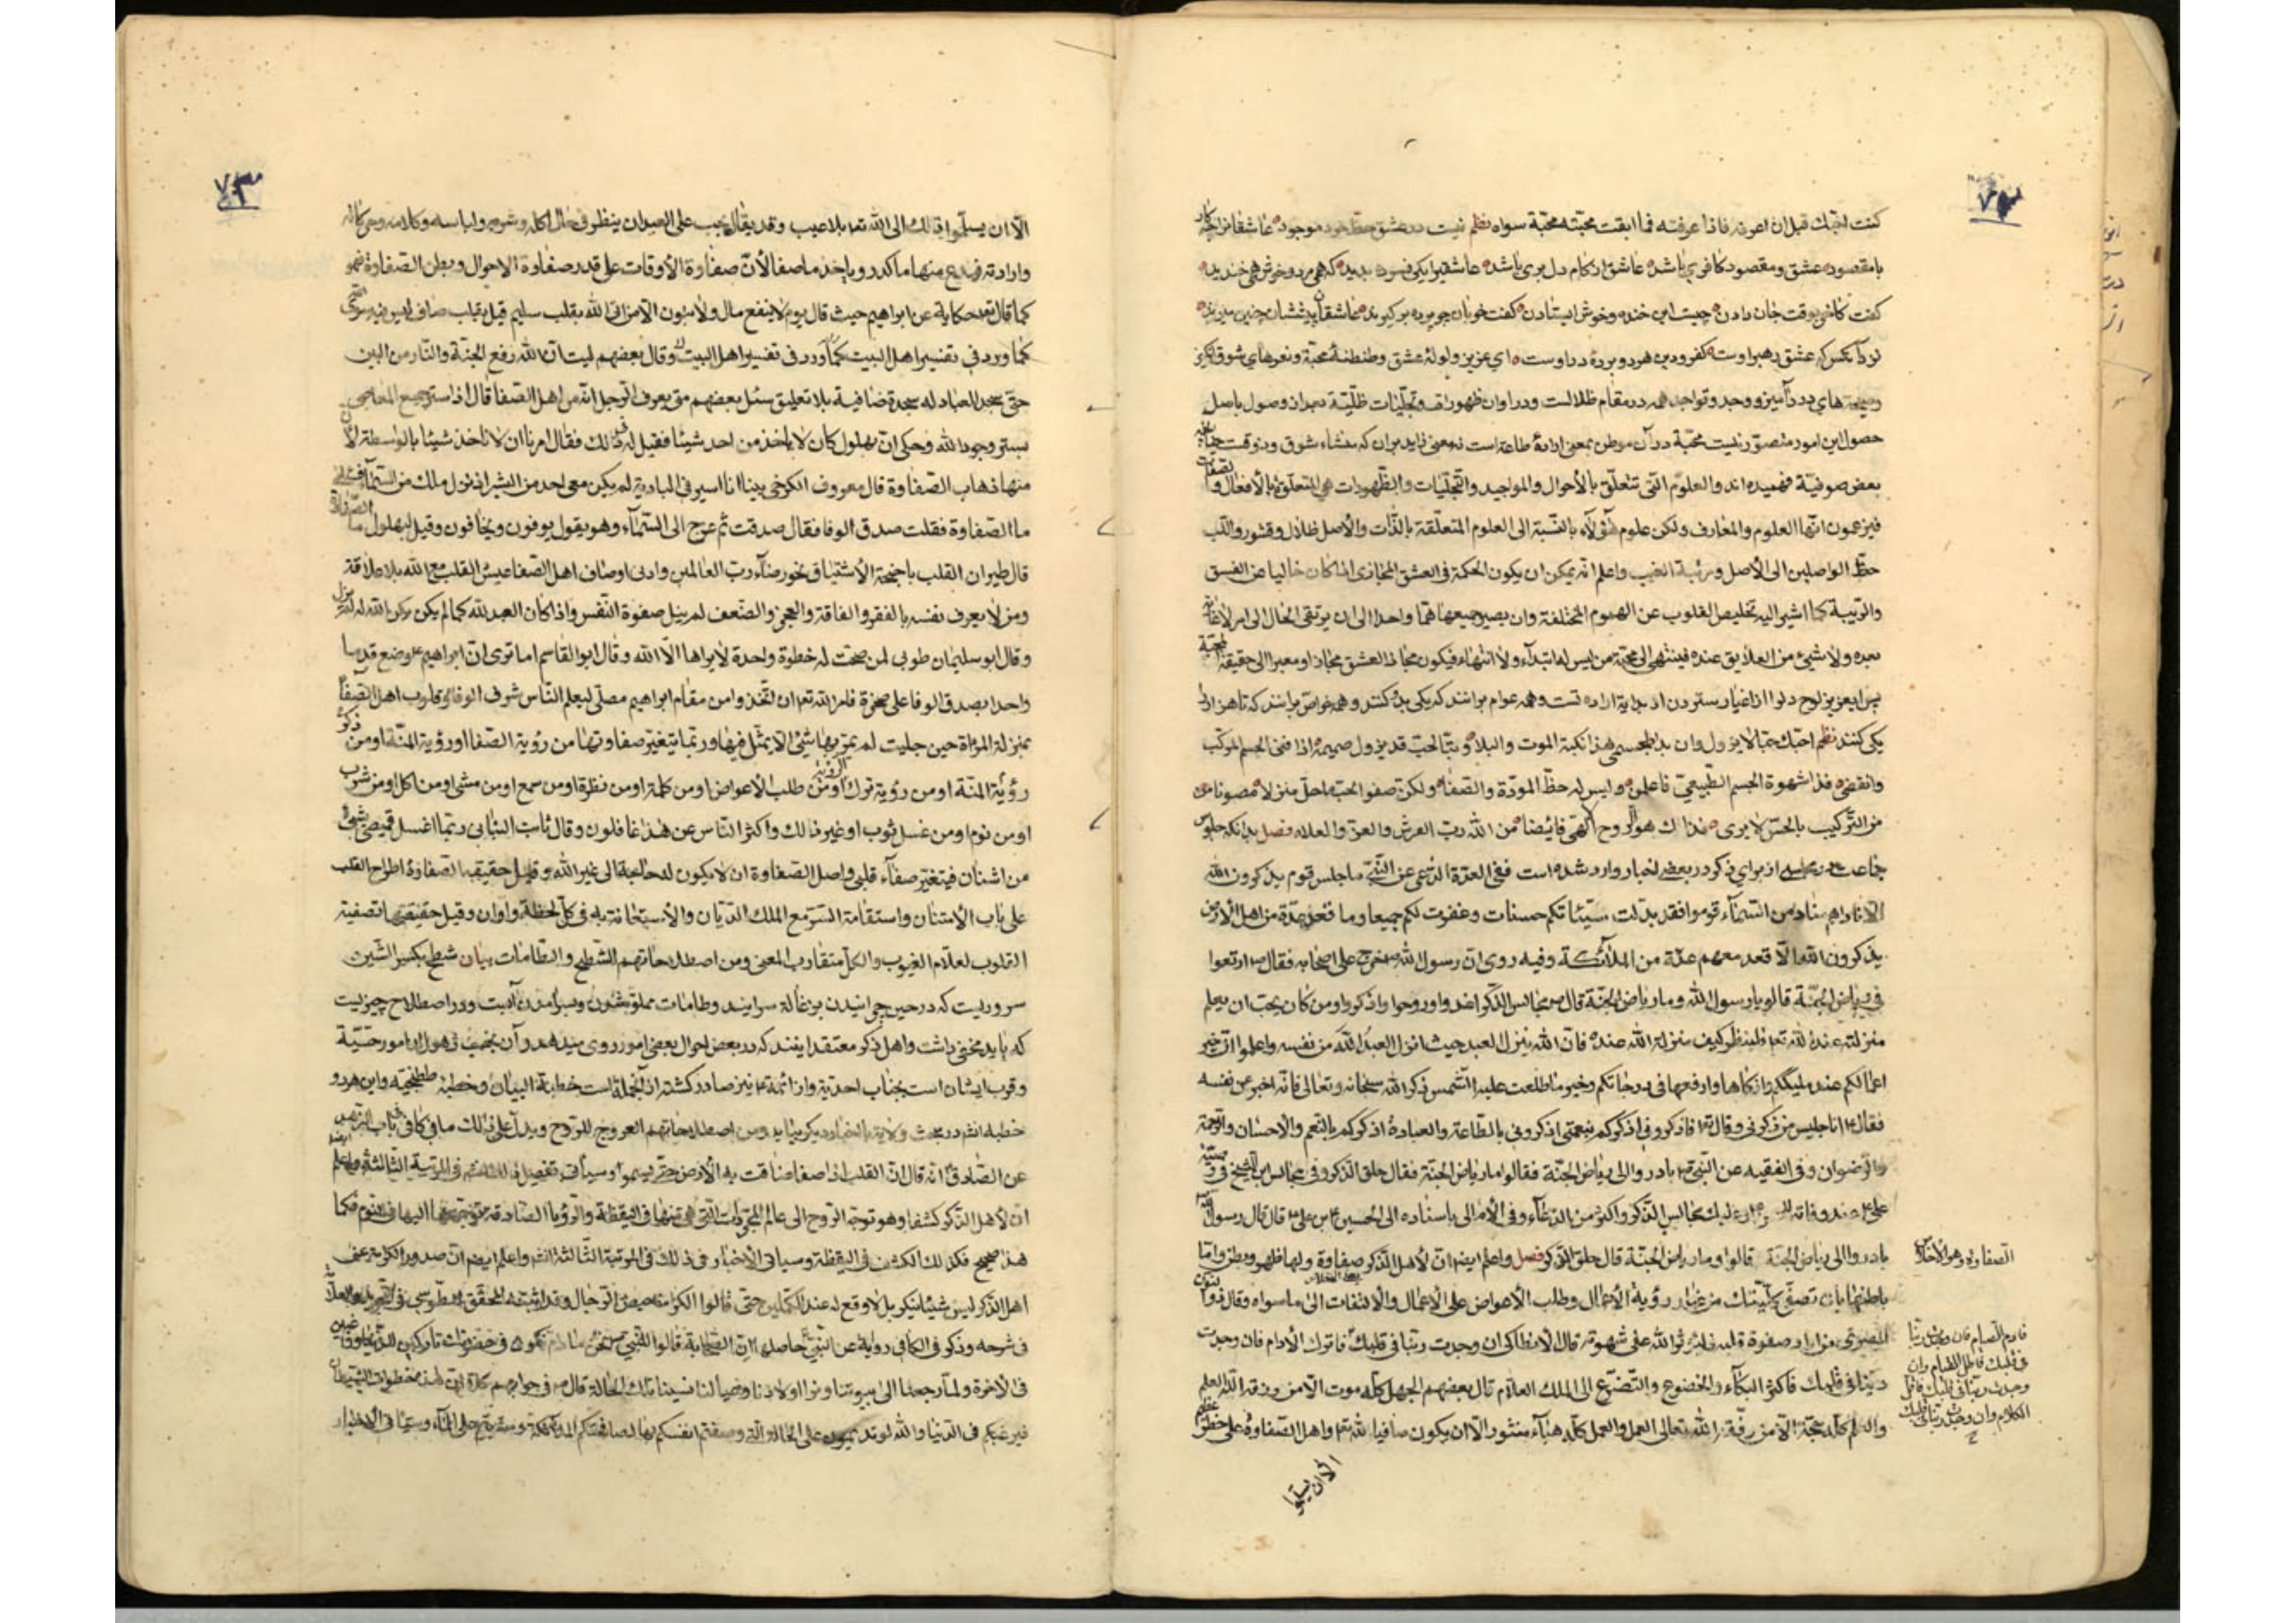 ٧٢
كنت احبّك قبل ان اعرفه فاذا عرفته فما ابقت محبّته محبّة سواه نظم نيست در عشق حظ خود موجود عاشقانرا چه كار
با مقصود عشق و مقصود كافري باشد عاشق از كام دل بري باشد عاشقيرا يكي فسرده بديد كه همي مرد و خوش همي خنديد
كفت كاخر بوقت جان دادن چيست اين خنده و خوش استادن كفت خوبان چو پرده بركيرند عاشقان پيششان چنين ميرند
نزد آنكس كه عشق رهبر اوست كفر و دين هر دو پرده در اوست اي عزيز ولوله عشق و طنطنه محبّة و نعرهاي شوق انكيز
و صيحه هاي درد آميز و وجد و تواجد همه در مقام ظلالست و در اوان ظهورات و تجلّيات ظلّية بعد از وصول باصل
حصول اين امور متصوّر نيست محبّة در آن موطن بمعني اراده طاعة است نه معني زايد بر آن كه منشاء شوق و ذوقست چنانچه
بعض صوفيّة فهميده اند والعلوم التى تتعلّق بالأحوال والمواجيد والتجلّيات والظّهورات هي المتعلّقة بالأفعال والصّفات
فيزعمون انّها العلوم والمعارف ولكن علوم هؤلاء بالنّسبة الى العلوم المتعلّقة بالذّات والأصل ظلال وقشور واللّب
حظّ الواصلين الى الأصل و رتبة الغيب واعلم انّه يمكن ان يكون الحكمة في العشق المجازى اذا كان خاليا عن الفسق
والريبة كما اشير اليه تخليص القلوب عن الهموم المختلفة وان يصير جميعها همّا واحدا الى ان يرتقى الحال الى امر لا غاية
بعده ولا شيئ من العلايق عنده فينتهى الى محبّة من ليس له ابتداء ولا انتهاء فيكون مجاز العشق مجازا ومعبرا الى حقيقة المحبّة
پس ايعزيز لوح دل را از اغيار ستردن از بداية اراده تست و همه عوام برانند كه يكي بدو كنند و همه خواص برانند كه تا هزار را
يكي كنند نظم احبّك حبّا لا يزول وان بدا بجسمى هذا نكبة الموت والبلا و ربّ الحبّ قد يزول صميمه اذا فنى الجسم المركّب
وانقضى فذا شهوة الجسم الطّبيعيّ فاعلمن وليس له حظّ المودّة والصّفا ولكن صفو الحبّ ما حلّ منزلا مصونا
من التّركيب بالحسّ لا يرى فذاك هو الرّوح الهى فائضا من الله ربّ العرش والعزّ والعلا فصل بدانكه جلوس
جماعت در مجلسي از براي ذكر در بعض اخبار وارد شده است ففى العدّة الدّاعى عن النّبىّ ما جلس قوم يذكرون الله
الّا ناداهم مناد من السّماء قوموا فقد بدّلت سيّئاتكم حسنات وغفرت لكم جميعا وما قعد عدّة من اهل الأرض
يذكرون الله الّا قعد معهم عدّة من الملائكة وفيه روى انّ رسول الله ص خرج على اصحابه فقال ص ارتعوا
فى رياض الجنّة قالوا يا رسول الله وما رياض الجنّة قال ص مجالس الذّكر اغدوا وروحوا واذكروا ومن كان يحبّ ان يعلم
منزلته عند الله تع فلينظر كيف منزلة الله عنده فانّ الله ينزل العبد حيث انزل العبد الله من نفسه واعلموا انّ خير
اعمالكم عند مليككم وازكاها وارفعها فى درجاتكم وخير ما طلعت عليه الشّمس ذكر الله سبحانه وتعالى فانّه اخبر عن نفسه
فقال انا جليس من ذكرنى وقال تع فاذكرونى اذكركم بنعمتى اذكرونى بالطّاعة والعبادة اذكركم بالنّعم والاحسان والرّحمة
والرّضوان وفى الفقيه عن النّبى ص بادروا الى رياض الجنّة فقالوا ما رياض الجنّة فقال حلق الذّكر وفى مجالس ابن الشّيخ فى وصيّة
على ع عند وفاته عليك بمجالس الذّكر واكثر من الدّعاء وفى الأمالى باسناده الى الحسين ع بن على ع قال قال رسول الله
بادروا الى رياض الجنّة قالوا وما رياض الجنّة قال حلق الذّكر فصل واعلم ايضا انّ لأهل الذّكر صفاوة ولها ظهر وبطن وامّا
باطنها بان تصفّى كلّيتك من غبار رؤية الأعمال وطلب الأعواض على الأعمال والالتفات الى ما سواه وقال ذو النّون
المصرى من اراد صفوة قلبه فليؤثر الله على شهوته قال الانطاكى ان وجدت ربّنا فى قلبك فاترك الأدام فان وجدت
ربّنا فى قلبك فاكثر البكاء والخضوع والتّضرّع الى الملك العلّام قال بعضهم الجهل كلّه موت الّا من رزقه الله العلم
والعلم كلّه حجّة الّا من رفّقه الله تعالى العمل والعمل كلّه هباء منثور الّا ان يكون صافيا لله تع واهل الصّفاوة على خطر عظيم
الصفاوة وهو الأخلاص
فادم الصيام فان وجدت ربّنا
فى قلبك فاطل القيام وان
وجدت ربّنا فى قلبك فاقلّ
الكلام وان وجدت ربّنا فى قلبك
الّا ان يسلّموا
٧٣
الّا ان يسلّموا ذلك الى الله تع بلا عيب وقد يقال يجب على العبد ان ينظر فى حال اكله وشربه ولباسه وكلامه وحركاته
وارادته فيدع منها ما كدر وياخذ ما صفا لأنّ صفاوة الأوقات على قدر صفاوة الاحوال وبطن الصّفاوة فهو
كما قال تع حكاية عن ابراهيم حيث قال يوم لا ينفع مال ولا بنون الّا من اتى الله بقلب سليم قيل بقلب صاف ليس فيه سوى الله
كما ورد فى تفسير اهل البيت كما ورد فى تفسير اهل البيت وقال بعضهم ليت انّ الله رفع الجنّة والنّار من البين
حتّى سجد العباد له سجدة صافية بلا تعليق سئل بعضهم متى يعرف الرّجل انّه من اهل الصّفا قال اذا ستر جميع المعاصى
بستر وجود الله وحكى انّ بهلول كان لا ياخذ من احد شيئا فقيل له فى ذلك فقال امرنا ان لا ناخذ شيئا بالواسطة لأنّ
منها ذهاب الصّفاوة قال معروف الكرخى بينا انا اسير فى البادية لم يكن معى احد من البشر اذ نزل ملك من السّماء فقال لى
ما الصّفاوة فقلت صدق الوفا فقال صدقت ثم عرج الى السّماء وهو يقول يوفون ويخافون وقيل لبهلول ما الصّفاوة
قال طيران القلب باجنحة الأشتياق نحو رضاء ربّ العالمين وادنى اوصاف اهل الصّفا عيش القلب مع الله بلا علاقة
ومن لا يعرف نفسه بالفقر والفاقة والعجز والضّعف لم ينل صفوة النّفس واذا كان العبد لله كما لم يكن يكن الله له كما لم يزل
وقال ابو سليمان طوبى لمن صحّت له خطوة واحدة لا يراها الّا الله وقال ابو القاسم اما ترى انّ ابراهيم ع وضع قدما
واحدا بصدق الوفا على صخرة فامر الله تع ان اتّخذوا من مقام ابراهيم مصلّى ليعلم النّاس شرف الوفا وقلوب اهل الصّفا
بمنزلة المرآة حين جليت لم يمرّ بها شئ الّا يمثّل فيها وربّما يتغيّر صفاوتها من رؤية الصّفا او رؤية المنّة او من ذكر
رؤية المنّة او من رؤية ترك الرّؤية او من طلب الأعواض او من كلمة او من نظرة او من سمع او من مشى او من اكل او من شرب
او من نوم او من غسل ثوب او غير ذلك واكثر النّاس عن هذا غافلون وقال ثابت البنانى ربّما اغسل قميصى بشئ
من اشنان فيتغيّر صفاء قلبى واصل الصّفاوة ان لا يكون له حاجة الى غير الله وقيل حقيقة الصّفاوة اطراح القلب
على باب الأمتنان واستقامة السّرّ مع الملك الدّيّان والأستعانة به فى كلّ لحظة واوان وقيل حقيقتها تصفية
القلوب لعلّام الغيوب والكلّ متقارب المعنى ومن اصطلاحاتهم الشّطح والطّامات بيان شطح بكسر الشّين
سروديست كه در حين چرانيدن بزغاله سرايند وطامات مملو شدن وسرآمدن آبست ودر اصطلاح چيزيست
كه بايد مخفى داشت واهل ذكر معتقد ايند كه در بعض احوال بعض امور روى ميدهد وآن بخصيت ذهول از امور حسّيّة
وقرب ايشان است بجناب احديّة واز ائمّة ع نيز صادر كشته از آنجمله است خطبة البيان وخطبه طتنجيّه واين هر دو
خطبه انشم در بحث ولاية با اخبار ديكر بيايد ومن اصطلاحاتهم العروج للرّوح ويدلّ على ذلك ما فى كافى فى باب
عن الصّادق ع انّه قال انّ القلب اذا صفا ضاقت به الأرض حتّى يسمو وسيأتى تفصيل ذلك انشم فى المرتبة الثّالثة واعلم ايضا
انّ لأهل الذّكر كشفا وهو توجّه الرّوح الى عالم المجرّدات الّتى هى منها فى اليقظة والرّؤيا الصّادقة هو توجّهها اليها فى النّوم فكما
هذا صحيح فكذلك الكشف فى اليقظة وسياتى الأخبار فى ذلك فى المرتبة الثّالثة انشم واعلم ايضم انّ صدور الكرامة عن
اهل الذّكر ليس شيئا ينكر بل لا وقع له عند الكمّلين حتّى قالوا الكرامة حيض الرّجال وقد اثبته المحقّق الطّوسى فى التّجريد والعلّامة
فى شرحه وذكر فى الكافى رواية عن النّبىّ حاصلها انّ الصّحابة قالوا للنّبى ص نحن ما دام نكون فى حضرتك تاركين للدّنيا وراغبين
فى الأخرة ولمّا رجعنا الى بيوتنا ونرى اولادنا وعيالنا نسينا تلك الحالة قال ص فى جوابهم كلّا انّ هذه خطوات الشّيطان
فيرغبكم فى الدّنيا والله لو تدومون على الحالة الّتى وصفتم انفسكم بها لصافحتكم الملائكة ومشيتم على الماء وسيّما فى الأخبار